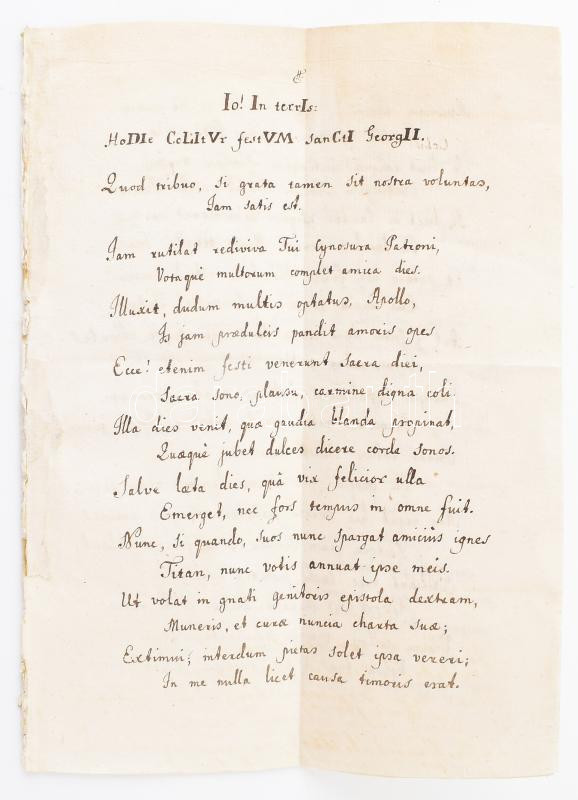 Io! In terrIs:
HoDIe CeLItVr festVM sanCtI GeorgII.
Quod tribuo, si grata tamen sit nostra voluntas,
Jam satis est.
Jam rutilat rediviva Tui Cynosura Patroni,
Votaquè multorum complet amica dies.
Illuxit, dudum multis optatus, Apollo,
Is jam prædulcis pandit amoris opes
Ecce! etenim festi venerunt sacra diei,
Sacra sono, plausu, carmine digna coli.
Illa dies venit, quæ gaudia blanda propinat,
Quæquè jubet dulces dicere corda sonos.
Salve læta dies, quâ vix felicior ulla
Emerget, nec fors tempus in omne fuit.
Nunc, si quando, suos nunc spargat amiciùs ignes
Titan, nunc votis annuat ipse meis.
Ut volat in gnati genitoris epistola dextram,
Muneris, et curæ nuncia charta suæ;
Extimui; interdum pietas solet ipsa vereri;
In me nulla licet causa timoris erat.